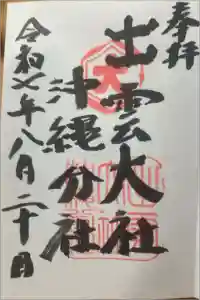 奉拝
出雲大社
沖縄分社
令和七年八月二十日